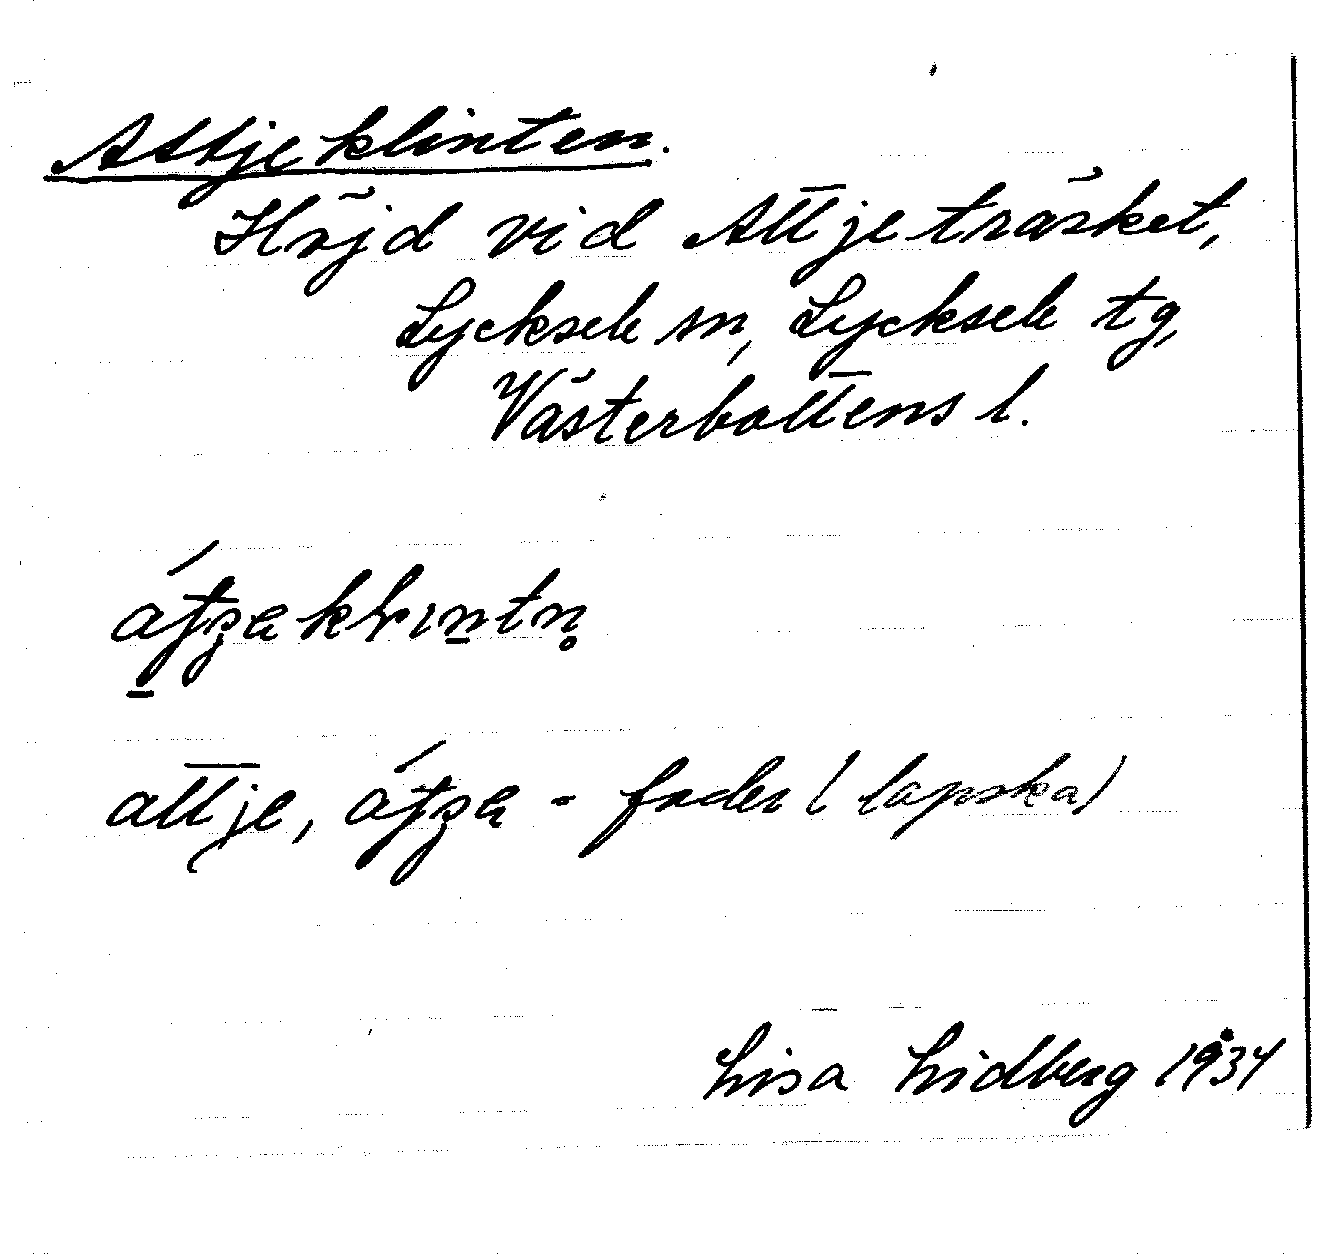 Attjeklinten.
Höjd vid Attjeträsket,
Lycksele sn, Lycksele tg,
Västerbottens l.
attje, - fader (lapska)
Lisa Lidberg 1934